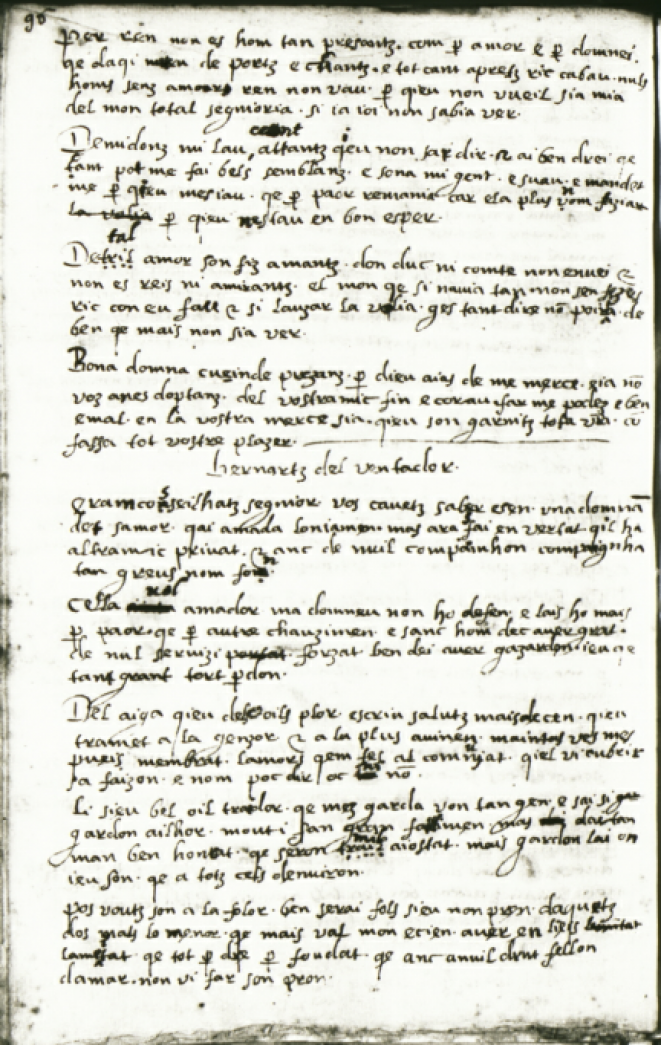 90
Per ren non es hom tan presantz. com p amor e p domnei.
qe daqi men de portz e chantz. e tot cant apress ric cabau. nuls
homs senz amors ren non vau. p qieu non vueil sia mia
del mon total segnioria. si ia ioi non sabia ver.
cant
De midonz mi lau, attantz qeu non sai dir. & ai ben drei qe
tant pot me fai bels semblanz. e sona mi gent. e suau. e mandet
me p qieu mesiau. qe p paor remania car ela plus nom faziar
la volia p qieu nestau en bon esper.
tal
De tril amor son fiz amantz. don duc ni comte non envei &
non es reis ni amirantz. el mon qe si navia tan mon sen
ric con eu fatz & si lauzar la volia. ges tant dire nō poira. de
ben qe mais non sia ver.
Bona domna cuginde prezanz. p dieu aias de me merce. gia nō
voz anes doptanz. del vostramic fin e corau. far me podez e ben
e mal. en la vostra merce sia. qieu son garnitz tota via. cō
fassa tot vostre plazer.
Bernartz del ventador.
Eram conseilhatz segnior vos cavetz saber e sen. una domna
det samor. qai amada loniamen. mas ara sai en vertat qil ha
altramic privat. & anc de nuil compainhon compainha
tan greus nom fon
nol
Cella amador ma domneu non ho defen. e lais ho mais
p paor. qe p autre chauzimen. e sanc hom dec aver grat.
de nul servizi forzat ben dei aver gazardon. ieu qe
tant grant tort pdon.
Del aiga qieu dels oils plor. escriu salutz mais de cen. qieu
tramet a la genzor & a la plus avinen. maintas ves mes
pueis membrat. lamors qem fes al comiat. qiel vi cubrir
sa faizon. e nom poc dir oc ni nō.
Li sieu bel oil traidor. qe mez garda von tan gen. e sai si
gardon ailhor. mout i fan gran fallimen. mas daitan
man ben honrat. qe seron aiostat. mais gardon lai on
ieu son. qe a totz cels denviron.
Pos vouts son a la folor. ben serai fols sieu non pren. daquetz
dos mals lo menor. qe mais val mon ecien. aver en lieis
lameitat qe tot p dre p foudat. qe anc anuil drut fellon
damar. non vi far son pron.